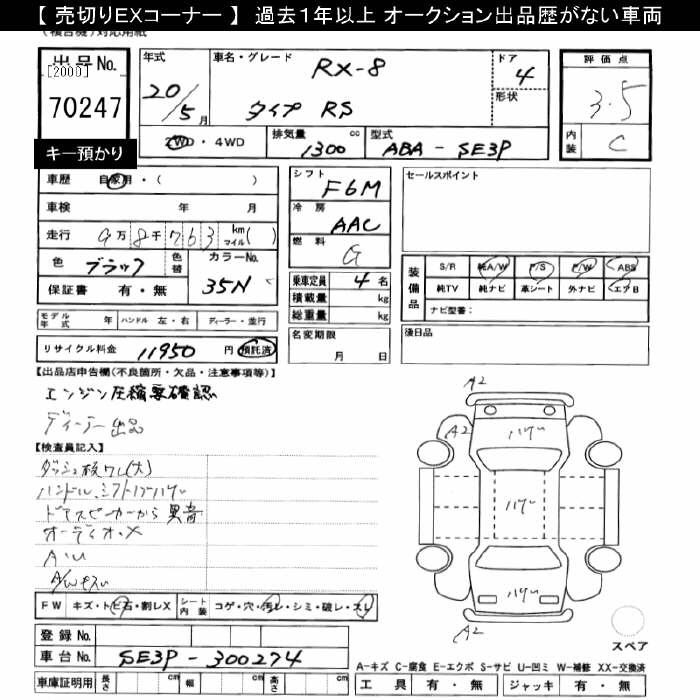 【 売切りEXコーナー 】 過去1年以上 オークション出品歴がない車両
出品No.
[2000]
70247
キー預かり
年式
20/5月
車名・グレード
RX-8
タイプ RS
ドア
4
形状
評価点
3.5
内装
C
2WD・4WD
排気量
1300 cc
型式
ABA - SE3P
車歴 自家用・( )
車検 年 月
走行 9万8千763 km マイル( )
色 ブラック 色替 カラーNo. 35N
保証書 有・無
シフト
F6M
冷房
AAC
燃料
G
乗車定員 4名
積載量 kg
総重量 kg
セールスポイント
装備品
S/R 純A/W P/S P/W ABS
純TV 純ナビ 革シート 外ナビ エアB
ナビ型番:
モデル年式 年 ハンドル 左・右 ディーラー・並行
リサイクル料金 11950 円 預託済
名変期限
月 日
後日品
【出品店申告欄(不良箇所・欠品・注意事項等)】
エンジン圧縮要確認
ディーラー出品
【検査員記入】
ダッシュ板ワレ(大)
ハンドル、シフトノブハゲ
ドアスピーカーから異音
オーディオ・X
A・U
FW キズ・トビ石・割レX シート内装 コゲ・穴・汚レ・シミ・破レ・スレ
登録No.
車台No. SE3P - 300274
車庫証明用 長さ cm 幅 cm 高さ cm
A2
A2
ハゲ
ハゲ
ハゲ
A2
スペア
A-キズ C-腐食 E-エクボ S-サビ U-凹ミ W-補修 XX-交換済
工具 有・無 ジャッキ 有・無